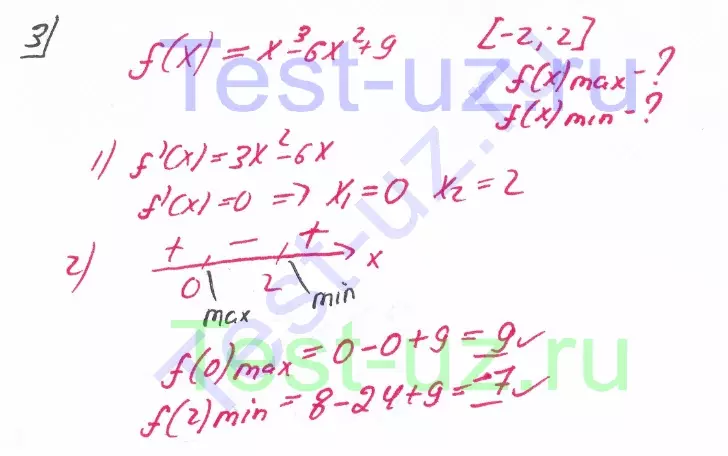 3) f(x) = x³-6x²+9 [-2; 2]
f(x)max-?
f(x)min-?
1) f'(x) = 3x²-6x
f'(x) = 0 => x₁ = 0 x₂ = 2
2) + - + x
0 2
max min
f(0)max = 0-0+9 = 9 ✓
f(2)min = 8-24+9 = -7 ✓
Test-uz.ru
Test-uz.ru
Test-uz.ru